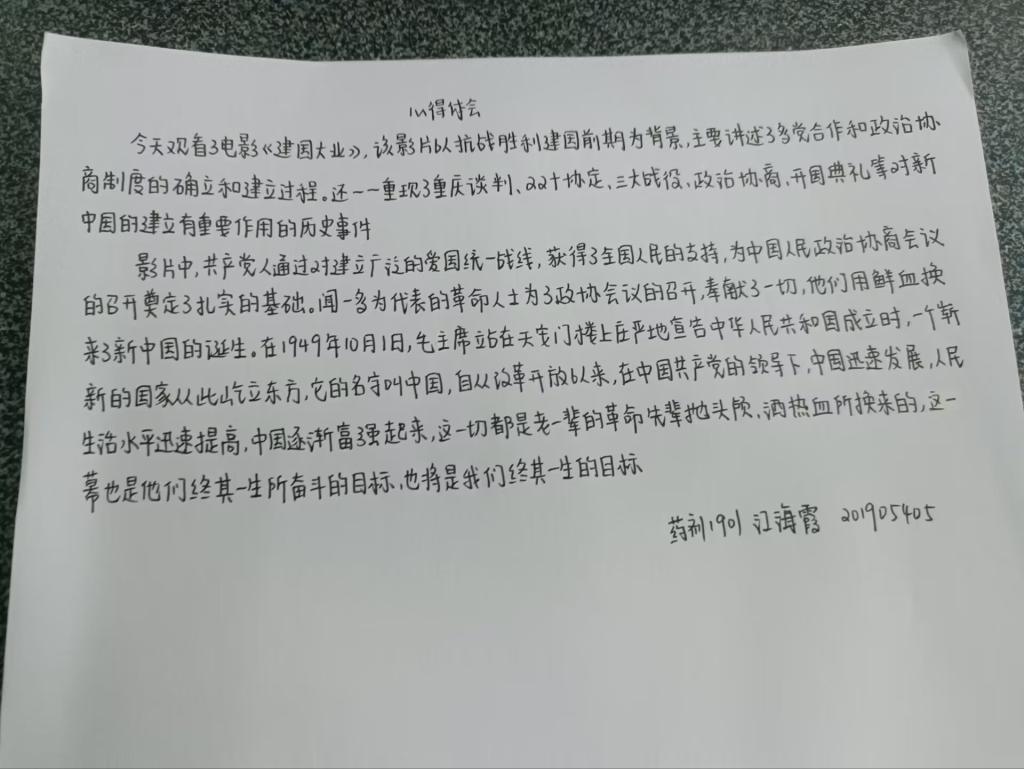 心得体会
今天观看了电影《建国大业》,该影片以抗战胜利建国前期为背景,主要讲述了多党合作和政治协
商制度的确立和建立过程。还一一重现了重庆谈判、双十协定、三大战役、政治协商、开国典礼等对新
中国的建立有重要作用的历史事件
影片中,共产党人通过对建立广泛的爱国统一战线,获得了全国人民的支持,为中国人民政治协商会议
的召开奠定了扎实的基础。闻一多为代表的革命人士为了政协会议的召开,奉献了一切,他们用鲜血换
来了新中国的诞生。在1949年10月1日,毛主席站在天安门楼上庄严地宣告中华人民共和国成立时,一个崭
新的国家从此屹立东方,它的名字叫中国,自从改革开放以来,在中国共产党的领导下,中国迅速发展,人民
生治水平迅速提高,中国逐渐富强起来,这一切都是老一辈的革命先辈抛头颅、洒热血所换来的,这一
幕也是他们终其一生所奋斗的目标,也将是我们终其一生的目标
药剂1901 江海霞 201905405